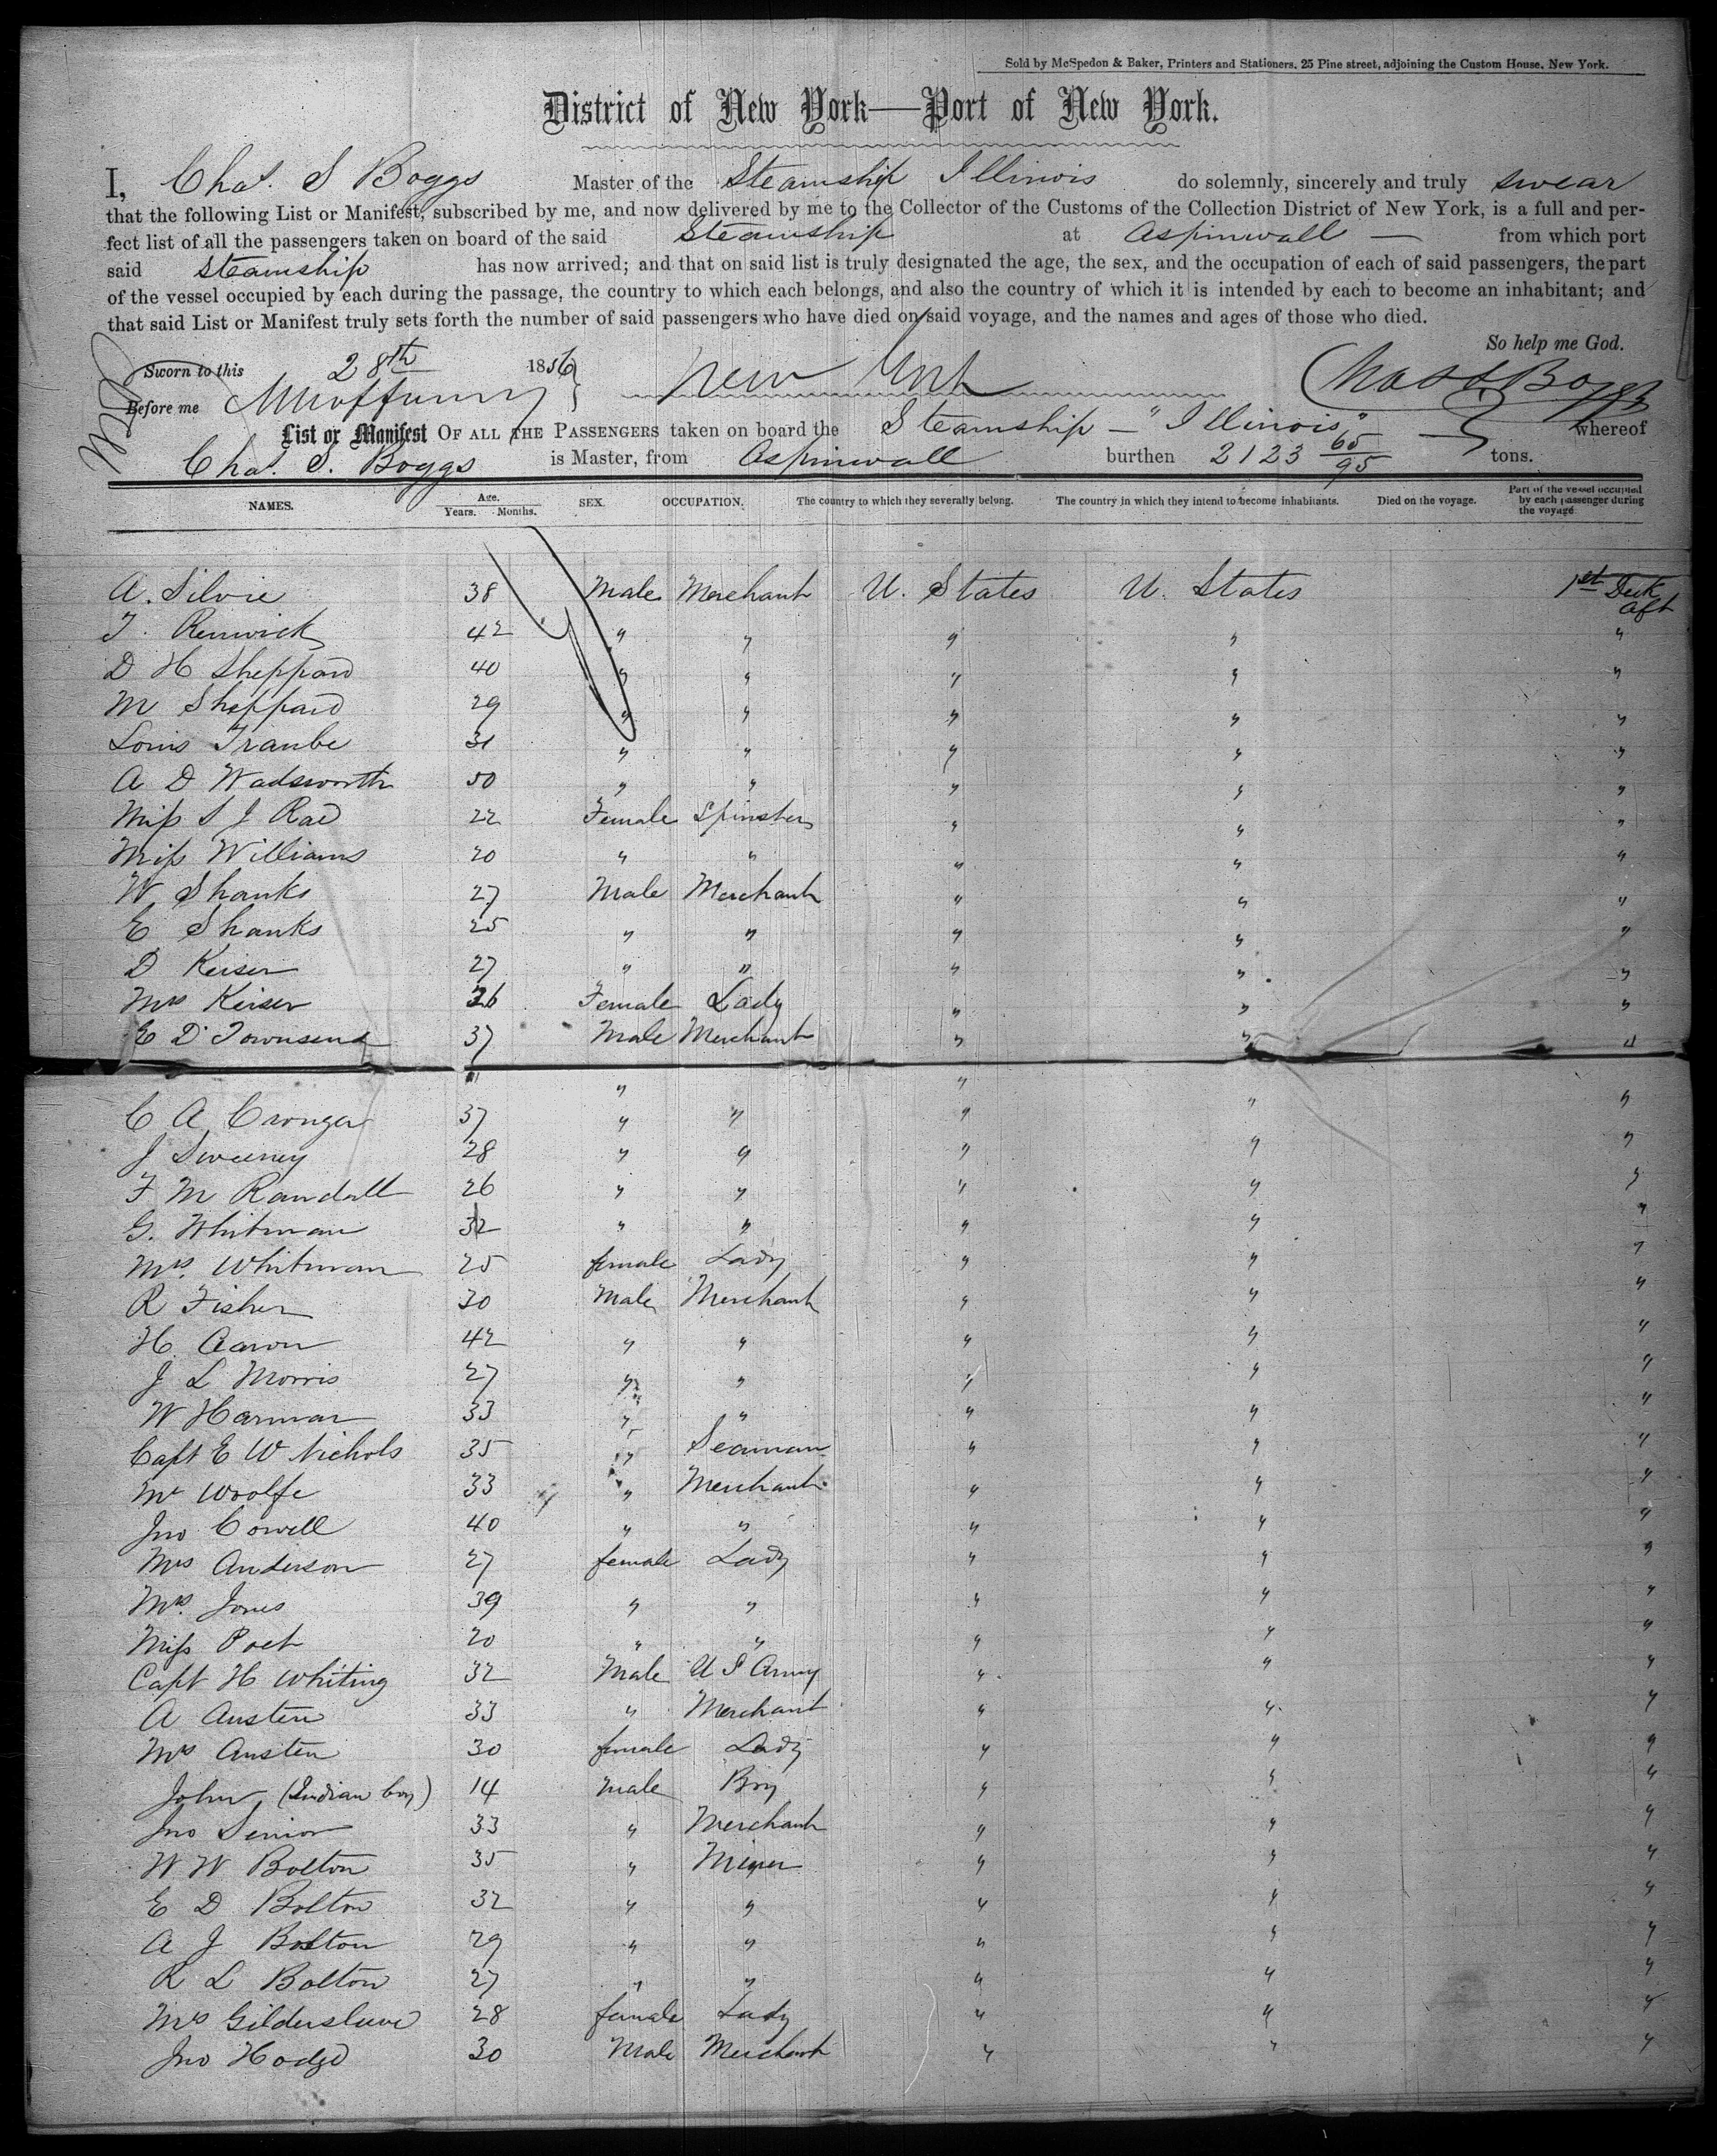 Sold by McSpedon & Baker, Printers and Stationers, 25 Pine street, adjoining the Custom House, New York.
District of New York—Port of New York.
I, Chas. S Boggs Master of the Steamship Illinois do solemnly, sincerely and truly swear
that the following List or Manifest, subscribed by me, and now delivered by me to the Collector of the Customs of the Collection District of New York, is a full and per-
fect list of all the passengers taken on board of the said Steamship at Aspinwall — from which port
said Steamship has now arrived; and that on said list is truly designated the age, the sex, and the occupation of each of said passengers, the part
of the vessel occupied by each during the passage, the country to which each belongs, and also the country of which it is intended by each to become an inhabitant; and
that said List or Manifest truly sets forth the number of said passengers who have died on said voyage, and the names and ages of those who died.
So help me God.
Sworn to this 28th 1856 New York Chas S Boggs
Before me
List or Manifest OF ALL THE PASSENGERS taken on board the Steamship — "Illinois" whereof
Chas. S. Boggs is Master, from Aspinwall burthen 2123 65/95 tons.
NAMES. Age. Years. Months. SEX. OCCUPATION. The country to which they severally belong. The country in which they intend to become inhabitants. Died on the voyage. Part of the vessel occupied by each passenger during the voyage
A. Silvie 38 Male Merchant U. States U. States 1st Deck aft
T. Renwick 42 " " " " "
D H Sheppard 40 " " " " "
M Sheppard 29 " " " " "
Louis Traube 31 " " " " "
A D Wadsworth 50 " " " " "
Miss S J Rae 22 Female Spinster " " "
Miss Williams 20 " " " " "
W Shanks 27 Male Merchant " " "
E Shanks 25 " " " " "
D Keiser 27 " " " " "
Mrs Keiser 26 Female Lady " " "
E D Townsend 37 Male Merchant " " "
" " "
C A Cronger 37 " " " " "
J Sweeney 28 " " " " "
F M Randall 26 " " " " "
G. Whitman 32 " " " " "
Mrs. Whitman 25 female Lady " " "
R Fisher 30 Male Merchant " " "
H. Aaron 42 " " " " "
J L Morris 27 " " " " "
W Harman 33 " " " " "
Capt E W Nichols 35 " Seaman " " "
Mr Woolfe 33 " Merchant " " "
Jno Cowell 40 " " " " "
Mrs Anderson 27 female Lady " " "
Mrs. Jones 39 " " " " "
Miss Poet 20 " " " " "
Capt H Whiting 32 Male U S Army " " "
A Austen 33 " Merchant " " "
Mrs Austen 30 female Lady " " "
John (Indian boy) 14 Male Boy " " "
Jno Senior 33 " Merchant " " "
W W Bolton 35 " Miner " " "
E D Bolton 32 " " " " "
A J Bolton 29 " " " " "
R L Bolton 27 " " " " "
Mrs Gildersleeve 28 female Lady " " "
Jno Hodge 30 Male Merchant " " "